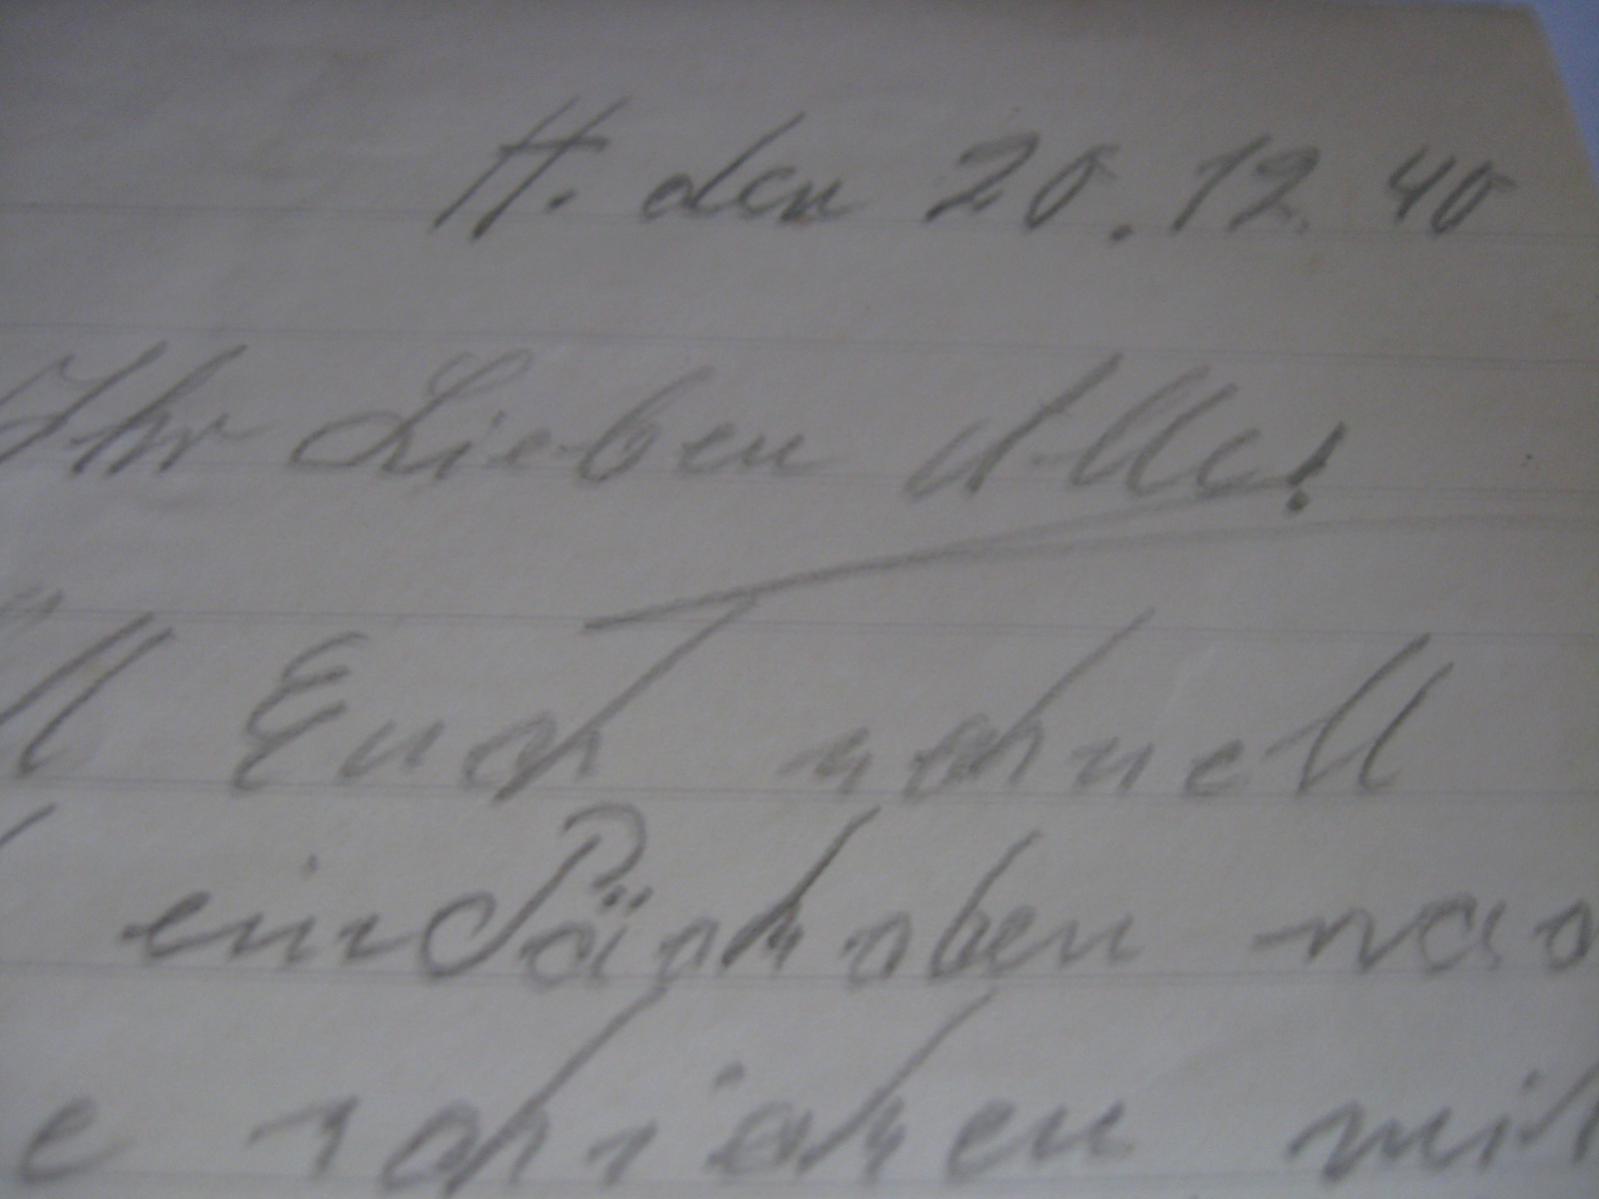 H. den 20.12.40
Ihr Lieben Alle!
ll Euch schnell
ein Päckchen nac
e schicken mit